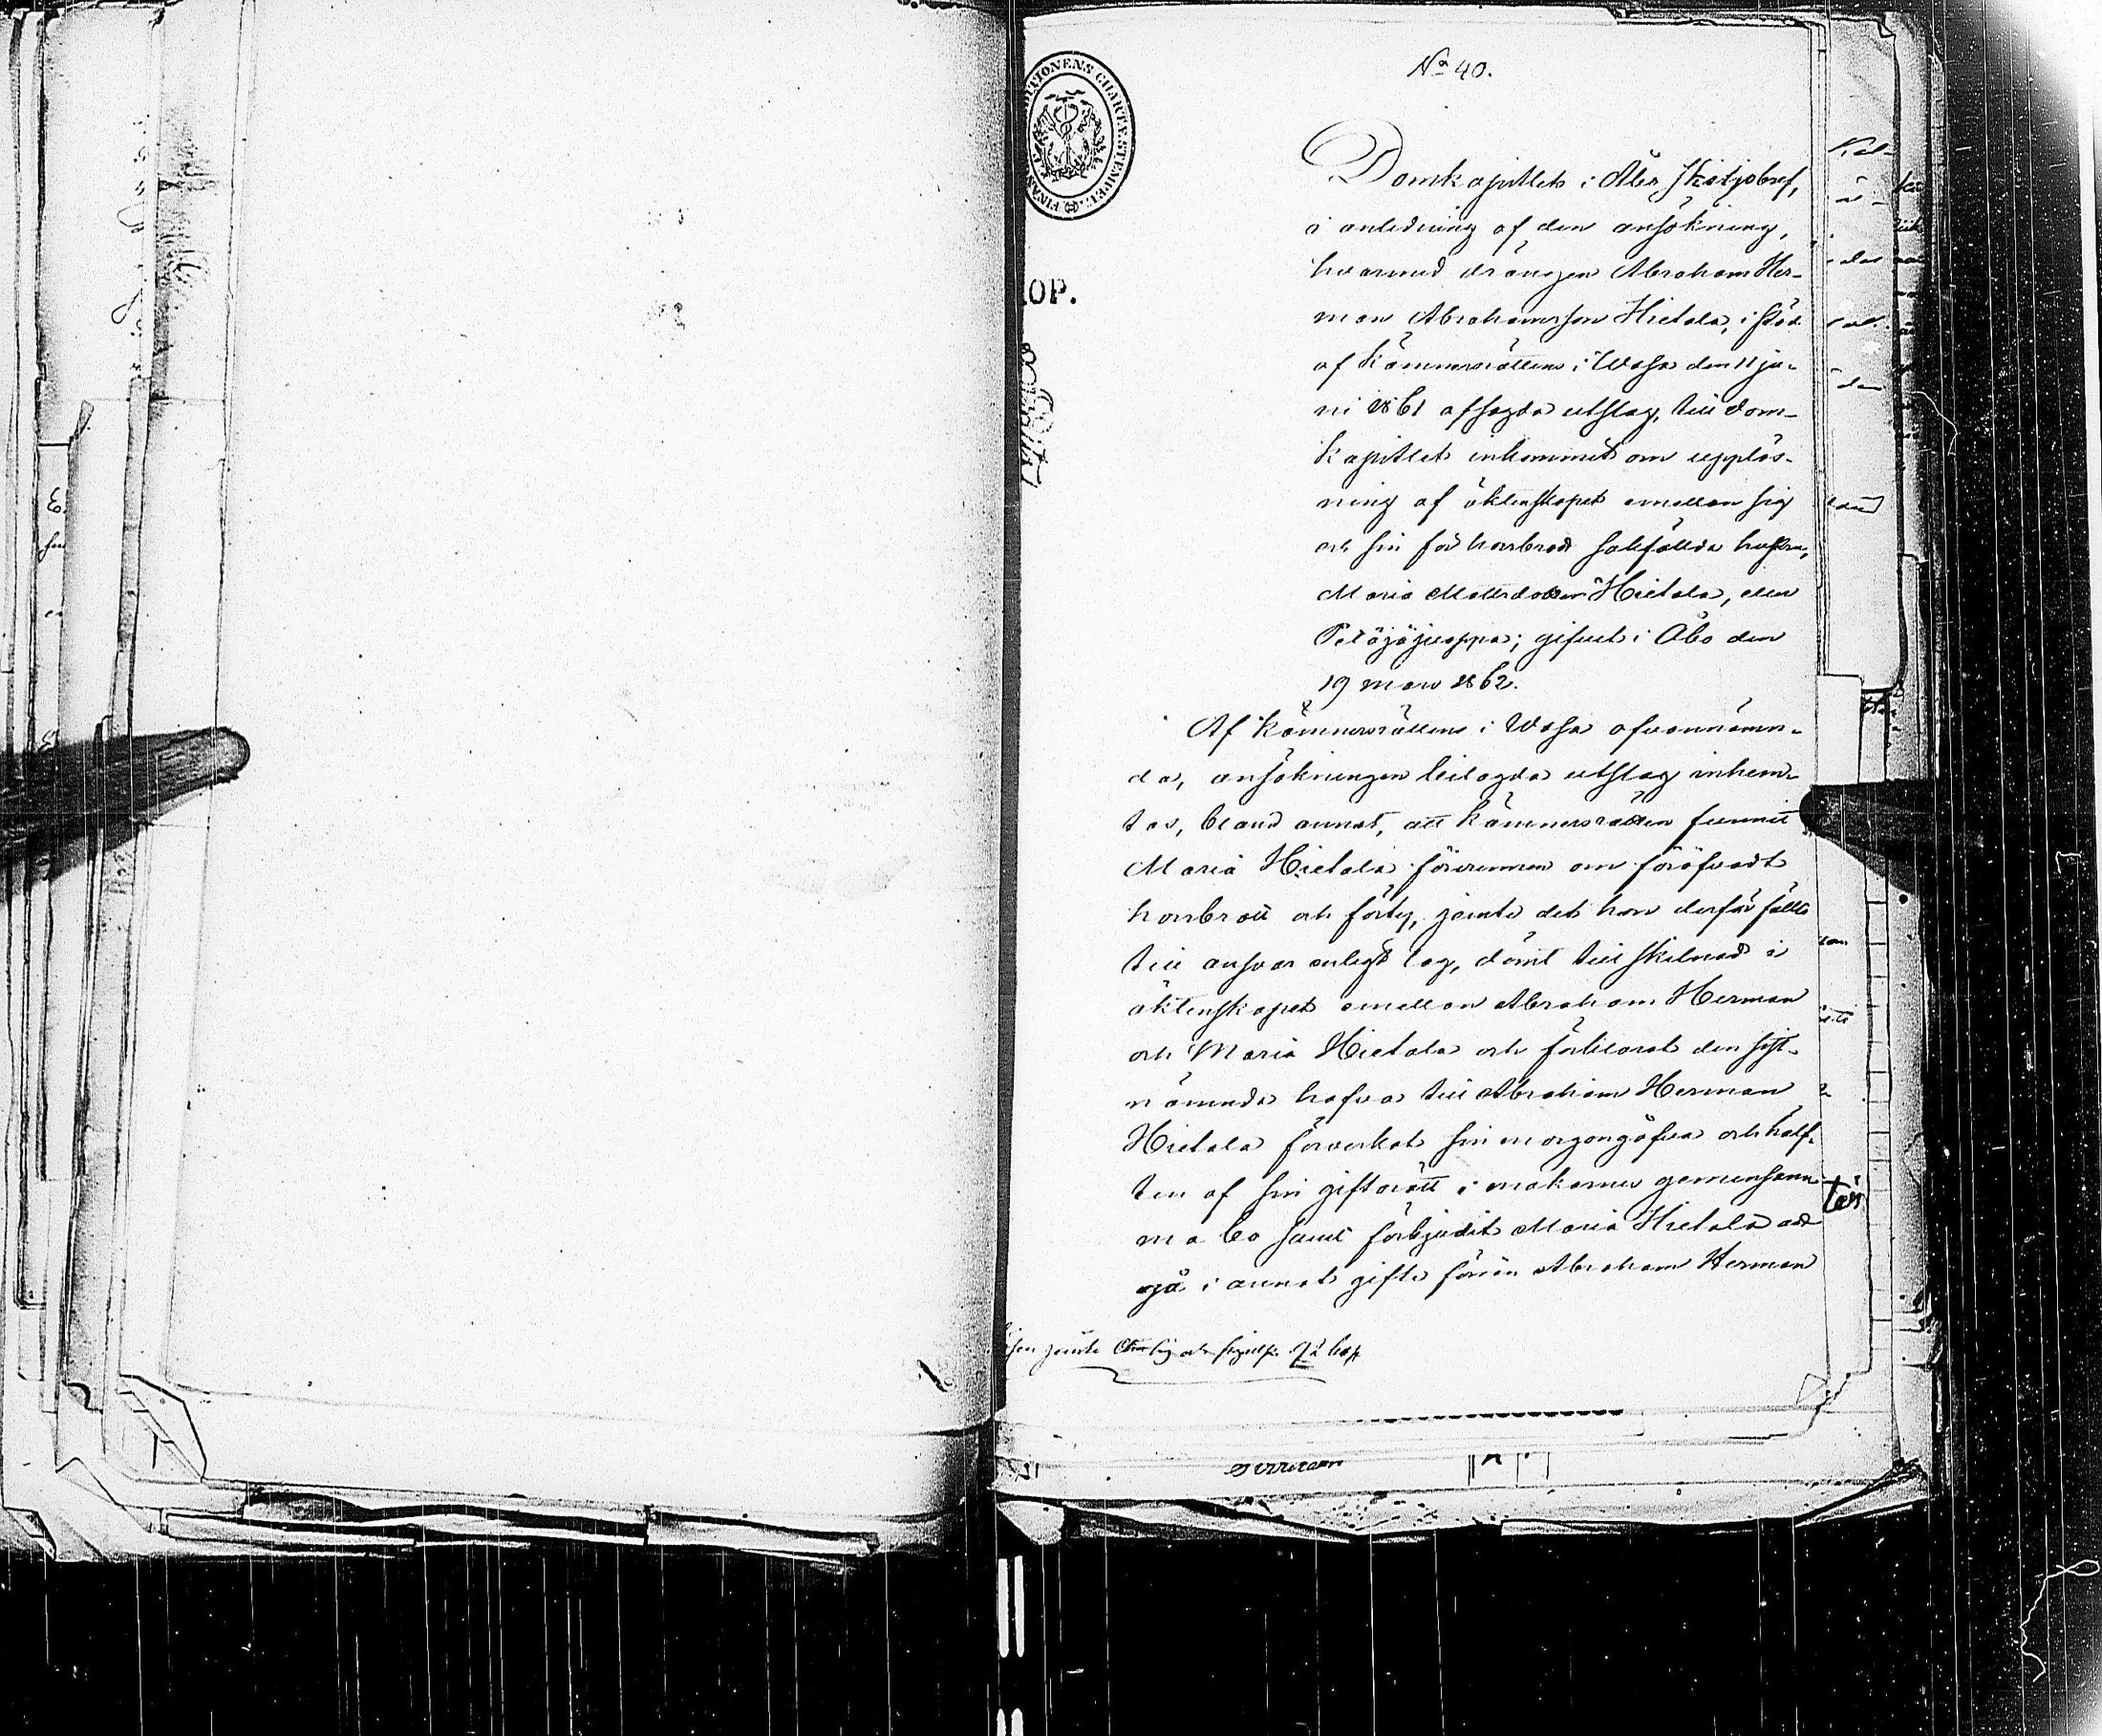 No 40.
Domkapitlets i Åbo skiljobref,
i anledning af den ansökning,
hvarmed drängen Abraham Her-
man Abrahamsson Hietala, i stöd
af Kämnersrättens i Wasa den 11 ju-
ni 1861 afsagda utslag, till dom-
kapitlet inkommit om upplös-
ning af äktenskapet emellan sig
och sin för horsbrott sakfällda hustru,
Maria Mattsdotter Hietala, eller
gifvet i Åbo den
19 mars 1862.
Af Kämnersrättens i Wasa ofvannämn-
da, ansökningen bilagda utslag inhem-
tas, bland annat, att Kämnersrätten funnit
Maria Hietala förvunnen om föröfvadt
horsbrott och förty, jemte det hon derför fällts
till ansvar enligt lag, dömt till skilnad i
äktenskapet emellan Abraham Herman
och Maria Hietala och förklarat den sist-
nämnda hafva till Abraham Herman
Hietala förverkat sin morgongåfva och hälf-
ten af sin giftorätt i makarnes gemensam-
ma bo samt förbjudit Maria Hietala att
gå i annat gifte förrän Abraham Herman
jemte
OP.
CHARTÆ.STEMPEL